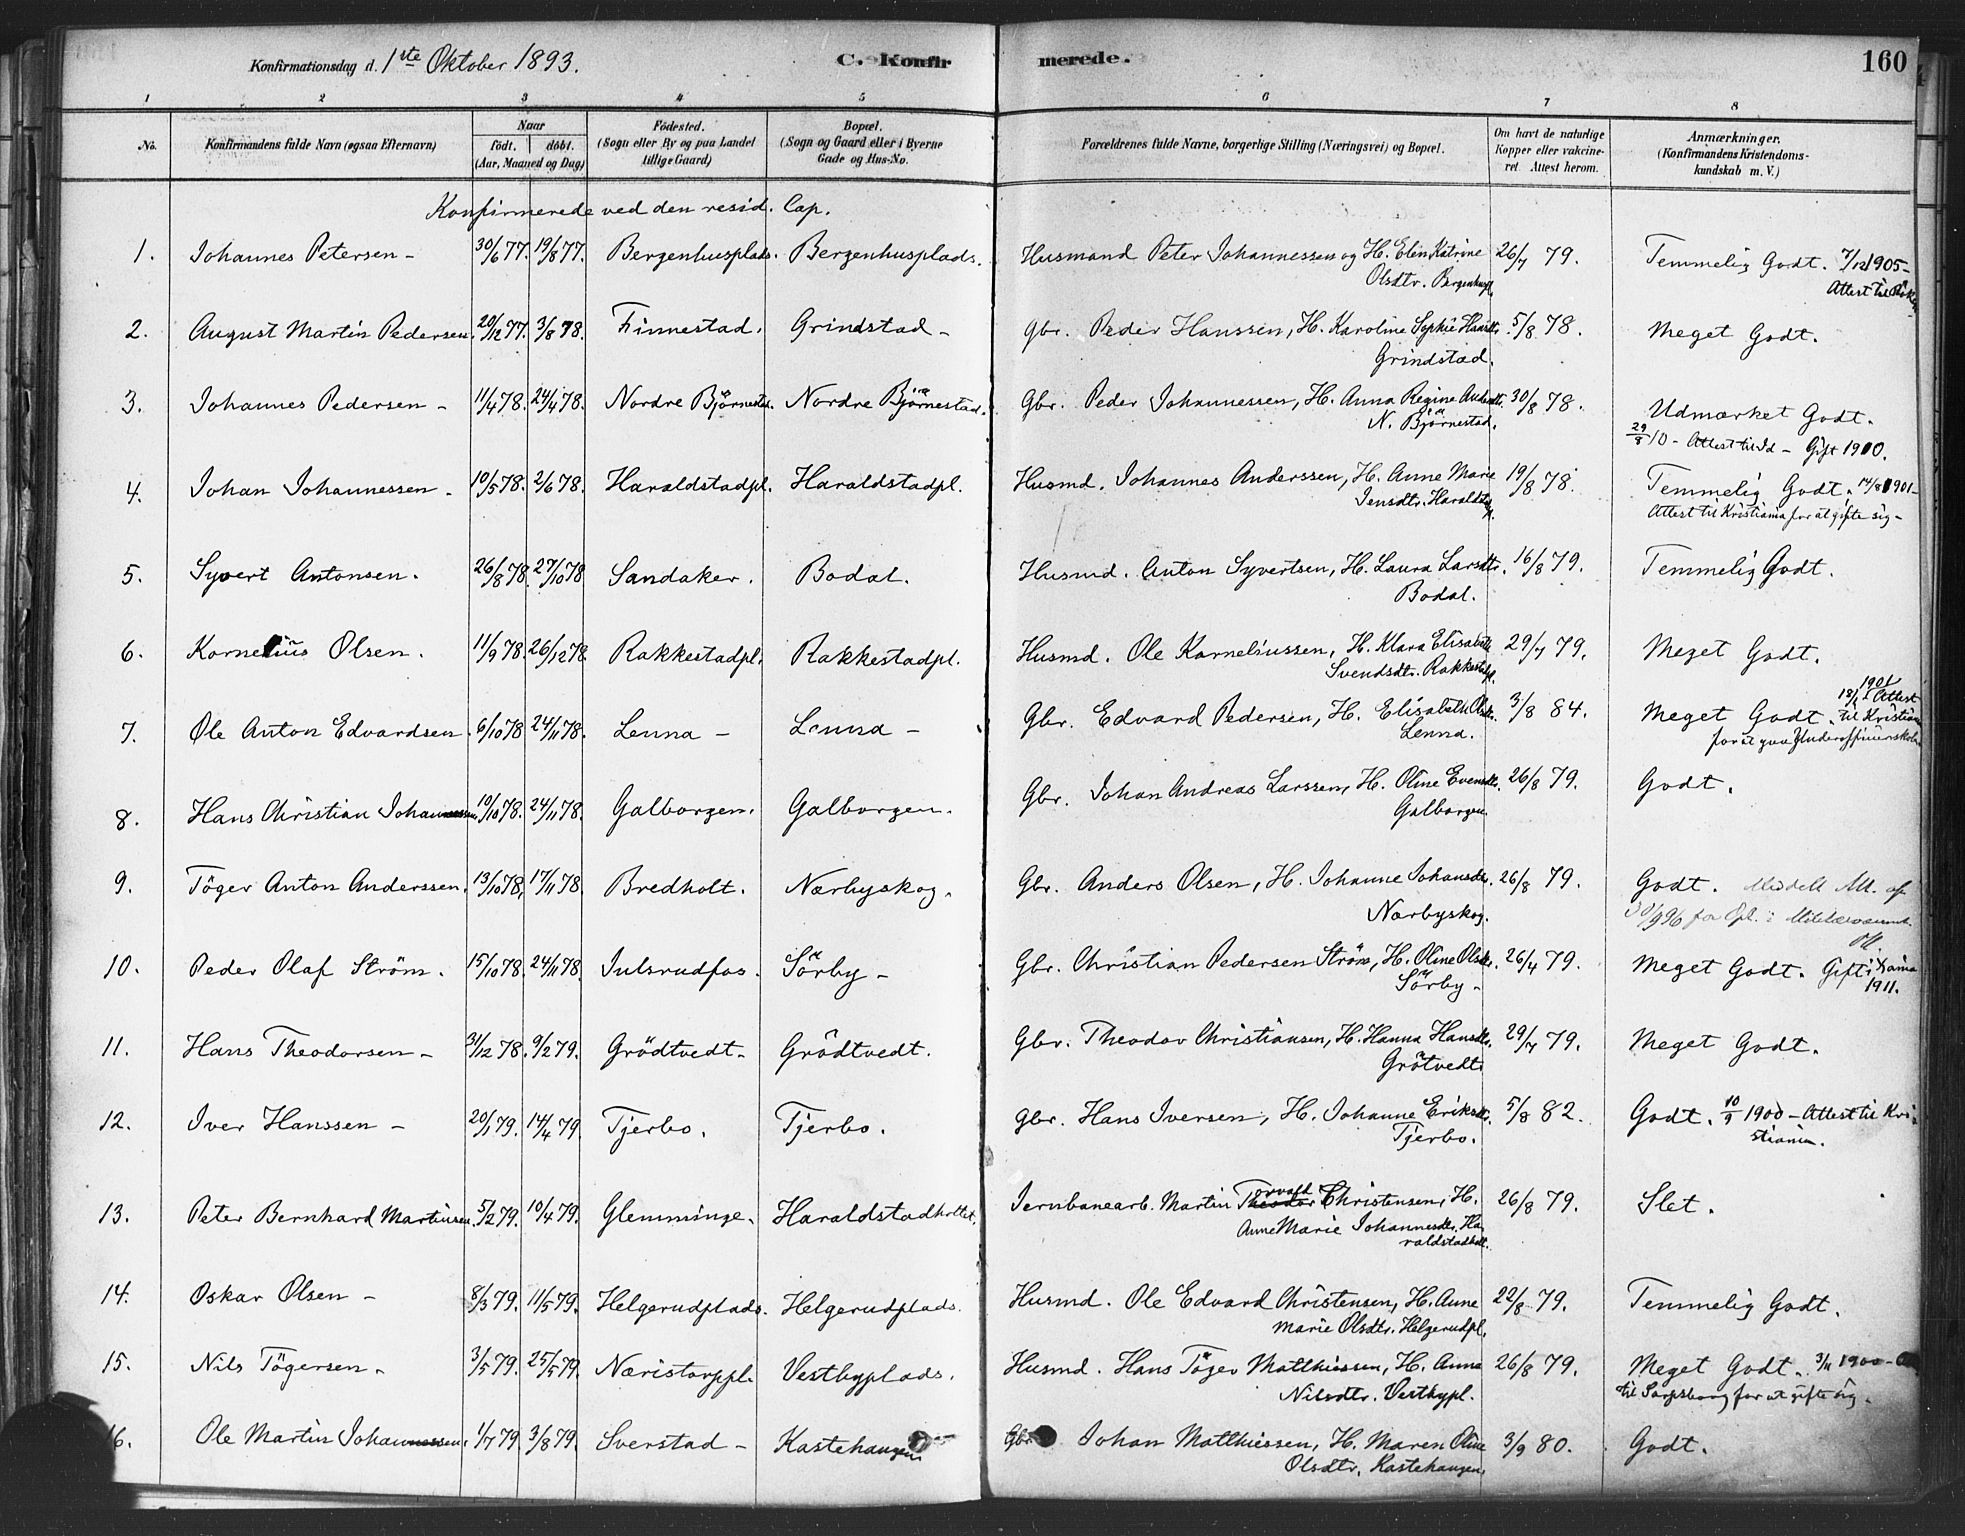 Konfirmationsdag d. 1ste Oktober 1893. C. Konfir merede. 160
1 2 3 4 5 6 7 8
No. Konfirmandens fulde Navn (ogsaa Efternavn) Naar født. døbt. (Aar, Maaned og Dag) Fødested. (Sogn eller By og paa Landet tillige Gaard) Bopæl. (Sogn og Gaard eller i Byerne Gade og Hus-No. Forældrenes fulde Navne, borgerlige Stilling (Næringsvei) og Bopæl. Om havt de naturlige Kopper eller vakcineret. Attest herom. Anmærkninger. (Konfirmandens Kristendomskundskab m. V.)
Konfirmerede ved den resid. Cap.
1. Johannes Petersen - 30/6 77. 19/8 77. Bergenhusplads. Bergenhusplads. Husmand Peter Johannessen og H. Elen Katrine 26/7 79. Temmelig Godt. 7/12 1905-
Olsdtr. Bergenhuspl. Attest til
2. August Martin Pedersen. 20/12 77. 3/8 78. Finnestad. Grindstad - Gbr. Peder Hanssen, H. Karoline Sophie Hansdtr. 5/8 78. Meget Godt.
Grindstad.
3. Johannes Pedersen - 11/4 78. 24/4 78. Nordre Björnestad. Nordre Björnestad. Gbr. Peder Johannessen, H. Anna Regine Andersdtr. 30/8 78. Udmærket Godt.
N. Björnestad. 29/8 10 - Attest til Id - Gift 1910.
4. Johan Johannessen - 10/5 78. 2/6 78. Haraldstadpl. Haraldstadpl. Husmd. Johannes Anderssen, H. Anne Marie 19/8 78. Temmelig Godt. 14/8 1901-
Jensdtr. Haraldstadpl. Attest til Kristiania for at gifte sig -
5. Syvert Antonsen. 26/8 78. 27/10 78 Sandaker. Bodal. Husmd. Anton Syvertsen, H. Laura Larsdtr. 16/8 79. Temmelig Godt.
Bodal.
6. Kornelius Olsen. 11/9 78. 26/12 78. Rakkestadpl. Rakkestadpl. Husmd. Ole Korneliussen, H. Klara Elisabeth 29/7 79. Meget Godt.
Svendsdtr. Rakkestadpl.
7. Ole Anton Edvardsen. 6/10 78 24/11 78. Lenna - Lenna - Gbr. Edvard Pedersen, H. Elisabeth Olsdtr. 3/8 84. Meget Godt. 18/1 1901 Attest til Kristiania
Lenna. for at gaa Underofficerskolen
8. Hans Christian Johannessen. 10/10 78. 24/11 78. Galborgen. Galborgen. Gbr. Johan Andreas Larssen, H. Oline Evensdtr. 26/8 79. Godt.
Galborgen
9. Töger Anton Anderssen. 13/10 78. 17/11 78. Bredholt. Nærbyskog. Gbr. Anders Olsen, H. Johanne Johansdtr. 26/8 79. Godt. Meddelt Att. af
Nærbyskog. 30/9 96 for Opl. i
10. Peder Olaf Ström. 15/10 78. 24/11 78. Julsrudfos. Sörby - Gbr. Christian Pedersen Ström, H. Oline Olsdtr. 26/4 79. Meget Godt. Gift i Kr.ania
Sörby - 1911.
11. Hans Theodorsen - 31/12 78. 9/2 79. Grödtvedt - Grödtvedt. Gbr. Theodor Christiansen, H. Hanna Hansdtr. 29/7 79. Meget Godt.
Grötvedt
12. Iver Hanssen - 20/1 79. 14/4 79. Tjerbo. Tjerbo. Gbr. Hans Iversen, H. Johanne Eriksdtr. 5/8 82. Godt. 10/9 1900 - Attest til Kri-
Tjerbo. stiania.
13. Peter Bernhard Martinsen. 5/2 79. 10/4 79. Glemminge. Haraldstadholtet. Jernbanearb. Martin Theodor Torvald Christensen, H. 26/8 79. Slet.
Anne Marie Johannesdtr. Ha-
raldstadholt.
14. Oskar Olsen - 8/3 79. 11/5 79. Helgerudplads. Helgerudplads. Husmd. Ole Edvard Christensen, H. Anne 22/8 79. Temmelig Godt.
Marie Olsdtr. Helgerudpl.
15. Nils Tögersen - 3/5 79. 25/5 79. Næristorppl. Vestbyplads. Husmd. Hans Töger Matthiessen, H. Anna 26/8 79. Meget Godt. 3/11 1900 -
Nilsdtr. Vestbypl. til Sarpsborg for at gifte sig.
16. Ole Martin Johannessen. 1/7 79 3/8 79. Sverstad - Kastehaugen Gbr. Johan Matthiessen, H. Maren Oline 3/9 80. Godt.
Olsdtr. Kastehaugen.